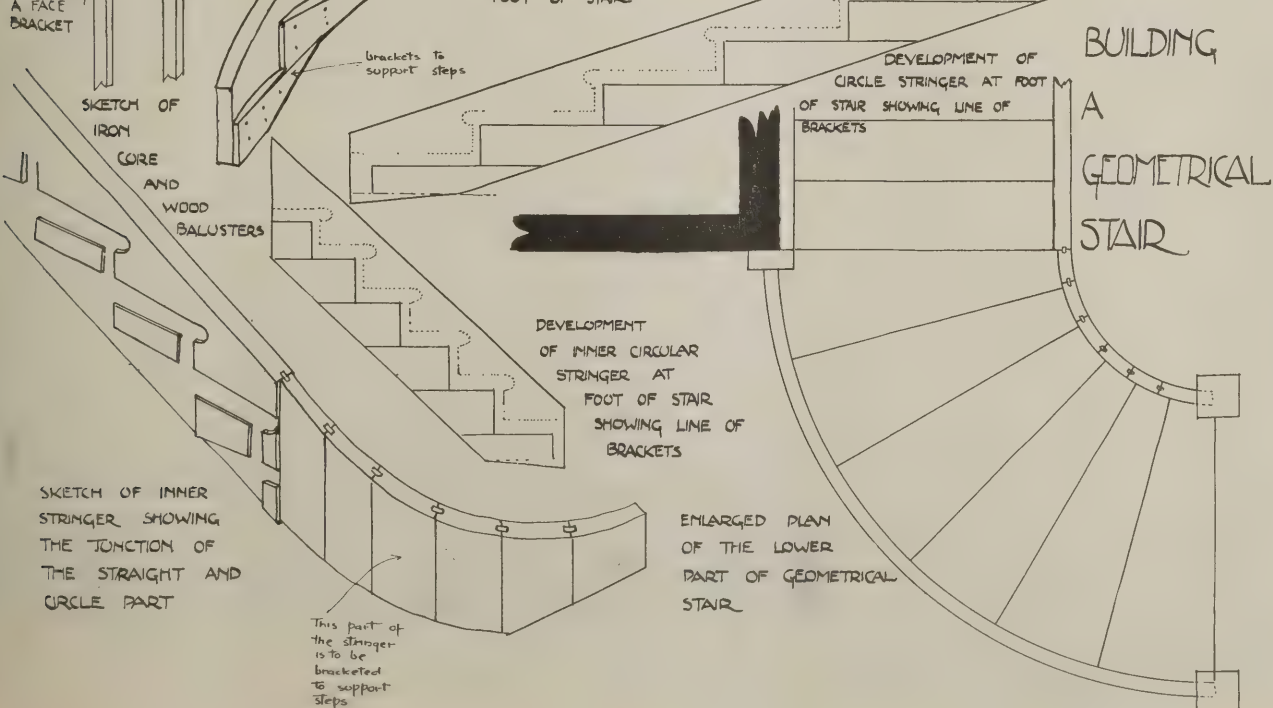 A FACE
BRACKET
FOOT OF STAIR
brackets to
support steps
SKETCH OF
IRON
CORE
AND
WOOD
BALUSTERS
DEVELOPMENT OF
CIRCLE STRINGER AT FOOT
OF STAIR SHOWING LINE OF
BRACKETS
BUILDING
A
GEOMETRICAL
STAIR
DEVELOPMENT
OF INNER CIRCULAR
STRINGER AT
FOOT OF STAIR
SHOWING LINE OF
BRACKETS
SKETCH OF INNER
STRINGER SHOWING
THE JUNCTION OF
THE STRAIGHT AND
CIRCLE PART
This part of
the stringer
is to be
bracketed
to support
steps
ENLARGED PLAN
OF THE LOWER
PART OF GEOMETRICAL
STAIR